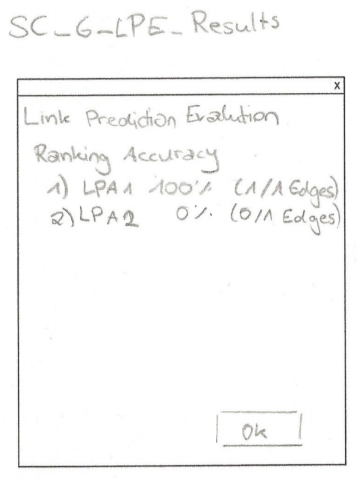 SC_6_LPE_Results
x
Link Prediction Evalution
Ranking Accuracy
1) LPA1 100% (1/1 Edges)
2) LPA2 0% (0/1 Edges)
Ok